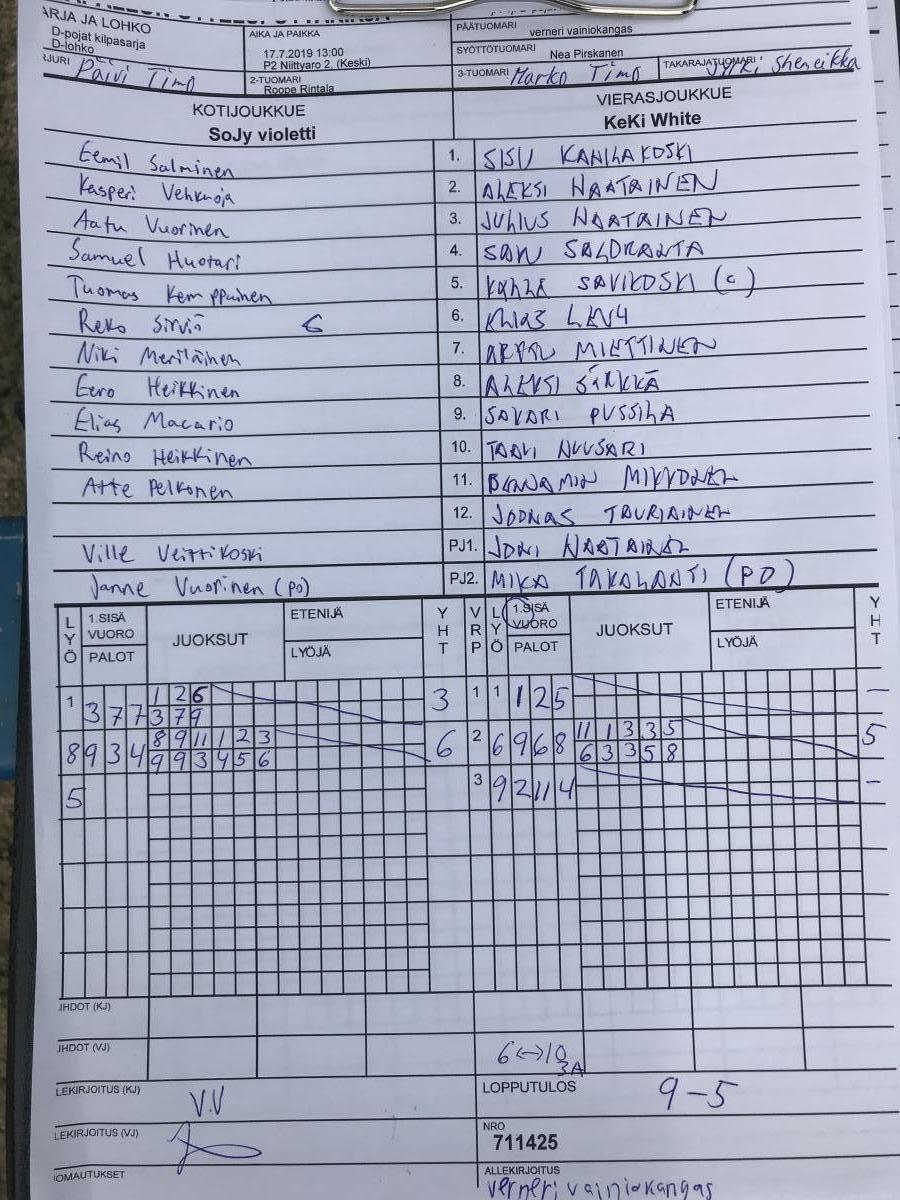 ARJA JA LOHKO
D-pojat kilpasarja
D-lohko
AIKA JA PAIKKA
17.7.2019 13:00
P2 Niittyaro 2, (Keski)
PÄÄTUOMARI
verneri vainiokangas
SYÖTTÖTUOMARI
Nea Pirskanen
Päivi Timo
2-TUOMARI
Roope Rintala
3-TUOMARI Marko Timo
TAKARAJATUOMARI
KOTIJOUKKUE
SoJy violetti
VIERASJOUKKUE
KeKi White
Eemil Salminen 1. SISU KANILAKOSKI
Kasperi Vehkaoja 2. ALEKSI HAATAINEN
Aatu Vuorinen 3. JULIUS HAATAINEN
Samuel Huotari 4. SALORANTA
Tuomas Kemppainen 5. KALLE SAVIKOSKI (C)
Reko Sirviö 6 6. ELIAS LEVÄ
Niki Meriläinen 7. MIETTINEN
Eero Heikkinen 8. ALEKSI SÄRKKÄ
Elias Macario 9. SAKARI PUSSILA
Reino Heikkinen 10. TAAVI NUUSARI
Atte Pelkonen 11. BENJAMIN MIKKONEN
12. JOONAS TAURIAINEN
Ville Veittikoski PJ1. JONI HAATAINEN
Janne Vuorinen (PO) PJ2. MIKA TAKALAHTI (PO)
LYÖ 1.SISÄ VUORO PALOT JUOKSUT ETENIJÄ LYÖJÄ YHT VRP LYÖ 1.SISÄ VUORO PALOT JUOKSUT ETENIJÄ LYÖJÄ YHT
1 3 7 7 1 2 6 3 1 1 1 2 5 —
3 7 9
8 9 3 4 8 9 11 1 2 3 6 2 6 9 6 8 11 1 3 3 5 5
9 9 3 4 5 6 6 3 3 5 8
5 3 9 2 11 4 -
JHDOT (KJ)
JHDOT (VJ) 6 <-> 10
3A
LEKIRJOITUS (KJ) V.V
LOPPUTULOS 9-5
LEKIRJOITUS (VJ)
NRO
711425
IOMAUTUKSET
ALLEKIRJOITUS
verneri vainiokangas